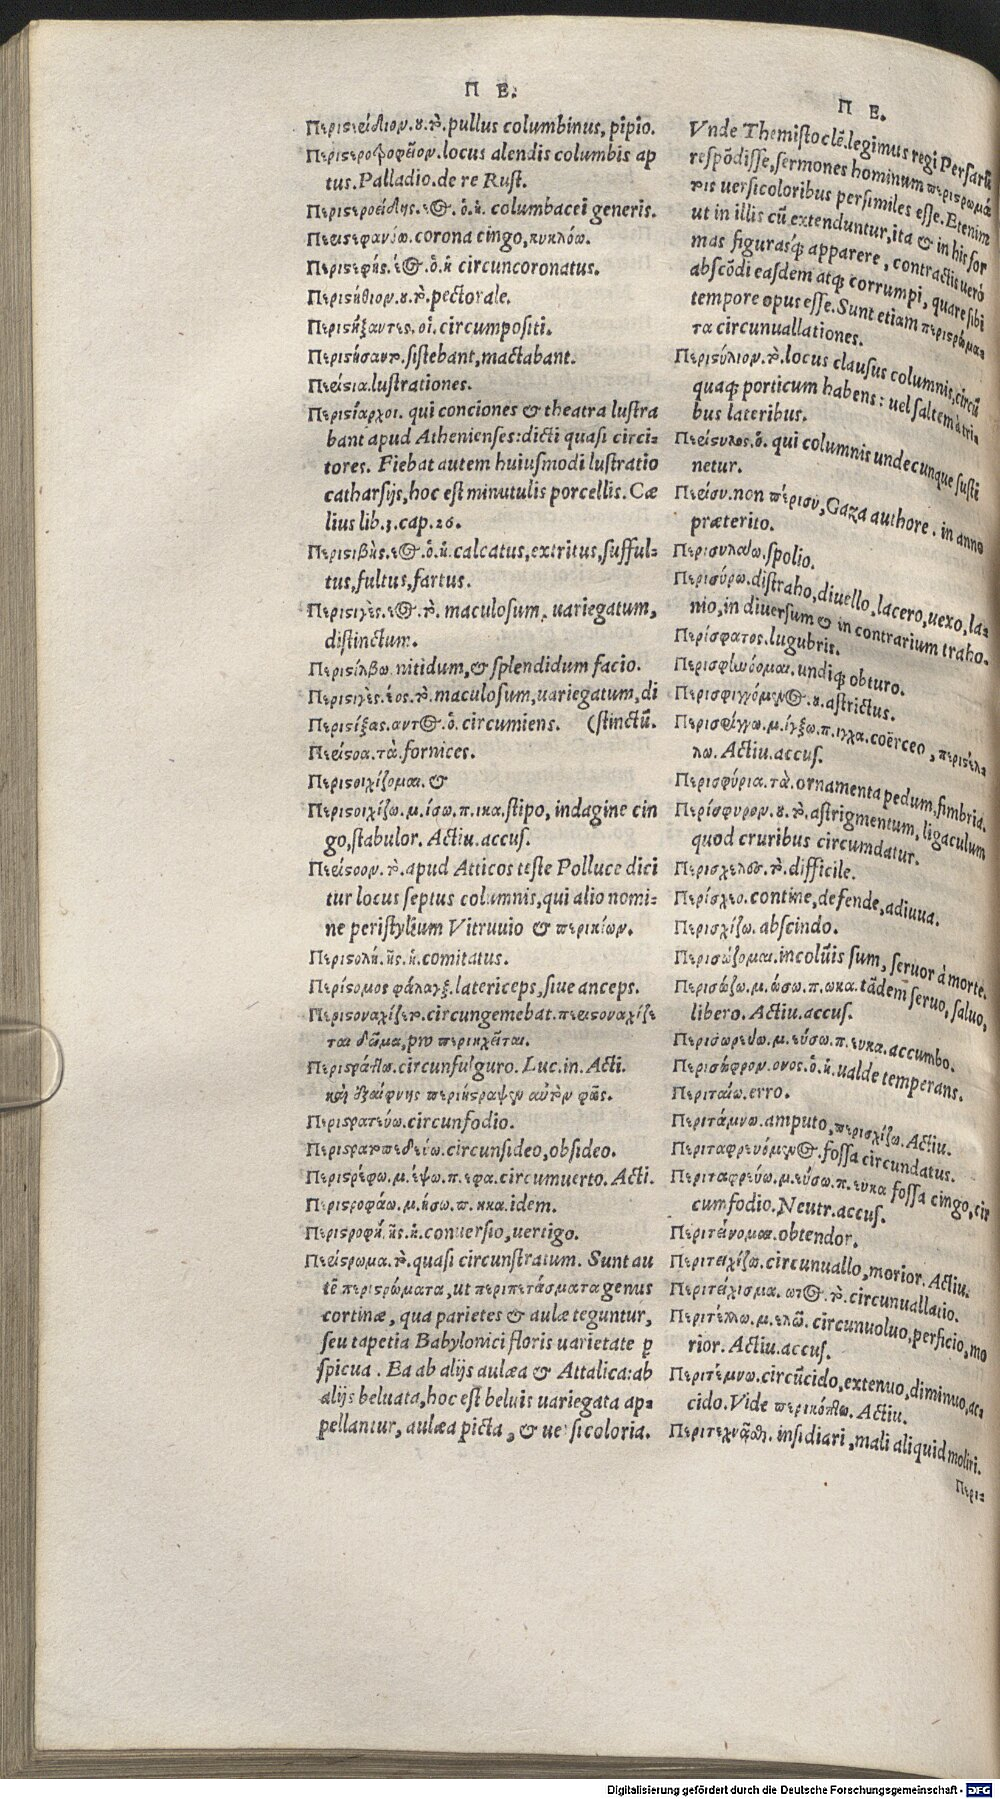 Π Ε.
Περιστείδιον.ȣ.τὸ.pullus columbinus, pipio.
Περιστεροτροφεῖον.locus alendis columbis ap
tus.Palladio.de re Rust.
Περιστεροείδης.εος.ὁ.ἡ. columbacei generis.
Περιστεφανόω.corona cingo,κυκλόω.
Περιστεφής.έος.ὁ.ἡ circuncoronatus.
Περιστήθιον.ȣ.τὸ.pectorale.
Περιστήξαντες.οἱ.circumpositi.
Περιστήσαντο.sistebant,mactabant.
Περίστια.lustrationes.
Περιστίαρχοι. qui conciones & theatra lustra
bant apud Athenienses:dicti quasi circi-
tores. Fiebat autem huiusmodi lustratio
catharsijs,hoc est minutulis porcellis. Cæ
lius lib.3.cap.26.
Περιστιβὴς.εος.ὁ.ἡ.calcatus,extritus,sufful-
tus,fultus,fartus.
Περιστιγὲς.εος.τὸ. maculosum, uariegatum,
distinctum.
Περιστίλβω.nitidum,& splendidum facio.
Περιστιγὲς.έος.τὸ.maculosum,uariegatum,di
Περιστίξας.αντος.ὁ.circumiens. (stinctū.
Περίστοα.τὰ.fornices.
Περιστοιχίζομαι.&
Περιστοιχίζω.μ.ίσω.π.ικα.stipo, indagine cin
go,stabulor. Actiu.accus.
Περίστοον.τὸ.apud Atticos teste Polluce dici
tur locus septus columnis,qui alio nomi-
ne peristylium Vitruuio & περικίων.
Περιστολή.ῆς.ἡ.comitatus.
Περίστομος φάλαγξ.latericeps,siue anceps.
Περιστοναχίζετο.circungemebat.περιστοναχίζε
ται δῶμα,pro περιηχεῖται.
Περιστράπτω.circunfulguro. Luc.in. Acti.
καὶ ἐξαίφνης περιήστραψεν αὐτὸν φῶς.
Περιστρατεύω.circunfodio.
Περιστρατοπεδεύω.circunsideo,obsideo.
Περιστρέφω.μ.έψω.π.εφα.circumuerto. Acti.
Περιστροφάω.μ.ήσω.π.ηκα.idem.
Περιστροφή.ῆς.ἡ.conuersio,uertigo.
Περίστρωμα.τὸ.quasi circunstratum. Sunt au
tē περιστρώματα,ut περιπετάσματα genus
cortinæ, qua parietes & aulæ teguntur,
seu tapetia Babylonici floris uarietate ꝑ
spicua. Ea ab alijs aulæa & Attalica:ab
alijs beluata,hoc est beluis uariegata ap-
pellantur, aulæa picta, & uersicoloria.
Π Ε.
Vnde Themistoclē.legimus regi Persarū
respōdisse,sermones hominum περιστρωμά
τοις uersicoloribus persimiles esse. Etenim
ut in illis cū extenduntur,ita & in his for
mas figurasq́ꝫ apparere, contractis uerò
abscōdi easdem atqꝫ corrumpi, quare sibi
tempore opus esse. Sunt etiam περιστρώμα-
τα circunuallationes.
Περιστύλιον.τὸ.locus clausus columnis,circū
quaqꝫ porticum habens: uel saltem à tri-
bus lateribus.
Περίστυλος.ὁ. qui columnis undecunque susti
netur.
Περίσυ.non πέρισυ, Gaza authore. in anno
præterito.
Περισυλάω.spolio.
Περισύρω.distraho,diuello,lacero,uexo,la-
nio,in diuersum & in contrarium traho.
Περίσφατος.lugubris.
Περισφηνόομαι.undiqꝫ obturo.
Περισφιγγόμενος.ȣ.astrictus.
Περισφίγγω.μ.ίγξω.π.ιγχα.coërceo, περιστέλ-
λω. Actiu.accus.
Περισφύρια.τὰ.ornamenta pedum,fimbria.
Περίσφυρον.ȣ.τὸ.astrigmentum, ligaculum
quod cruribus circumdatur.
Περισχελὲς.τὸ.difficile.
Περίσχεο.contine,defende,adiuua.
Περισχίζω.abscindo.
Περισώζομαι.incolūis sum, seruor à morte.
Περισώζω.μ.ώσω.π.ωκα.tādem seruo, saluo,
libero. Actiu.accus.
Περισωρεύω.μ.εύσω.π.ευκα.accumbo.
Περισώφρον.ονος.ὁ.ἡ.ualde temperans.
Περιταίω.erro.
Περιτάμνω.amputo,περισχίζω. Actiu.
Περιταφρευόμενος.fossa circundatus.
Περιταφρεύω.μ.εύσω.π.ευκα fossa cingo,cir
cumfodio.Neutr.accus.
Περιτείνομαι.obtendor.
Περιτειχίζω.circunuallo,morior. Actiu.
Περιτείχισμα. ατος.τὸ.circunuallatio.
Περιτέλλω.μ.ελῶ. circunuoluo,perficio,mo
rior. Actiu.accus.
Περιτέμνω.circūcido,extenuo,diminuo,ac-
cido. Vide περικόπτω. Actiu.
Περιτεχνᾶσθαι. insidiari,mali aliquid moliri.
Περι-
Digitalisierung gefördert durch die Deutsche Forschungsgemeinschaft - DFG